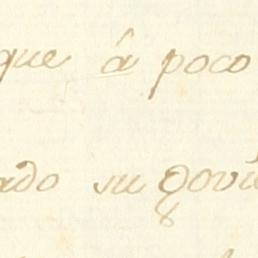 que á poco
ado su govi